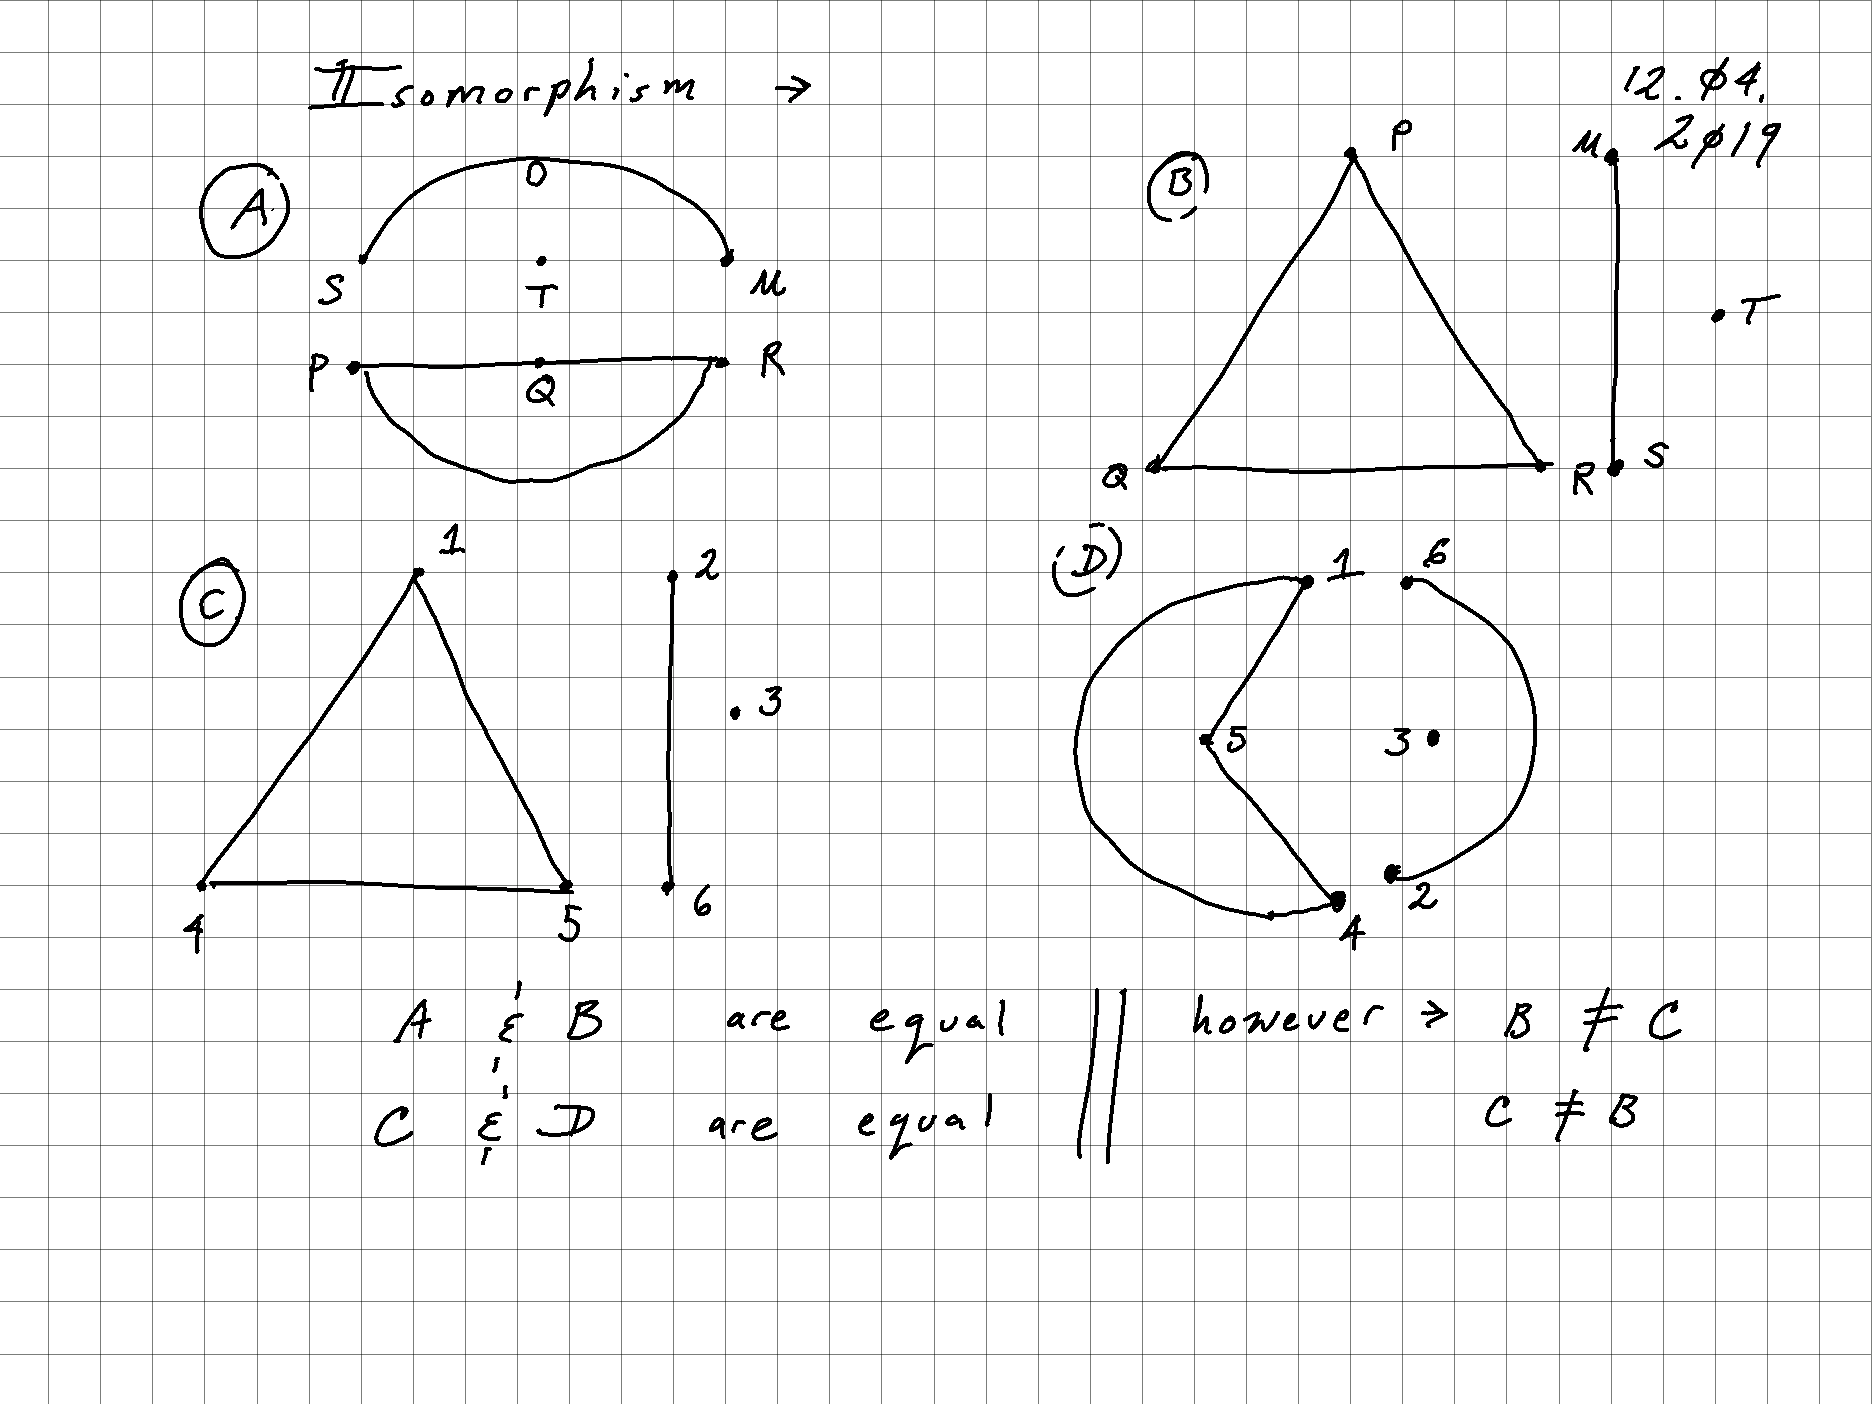 II Isomorphism →
12. 04.
2019
A
O
S T M
P Q R
B
P M
T
Q R S
C
1 2
3
4 5 6
D
1 6
5 3
2
4
A & B are equal || however → B ≠ C
C & D are equal || C ≠ B